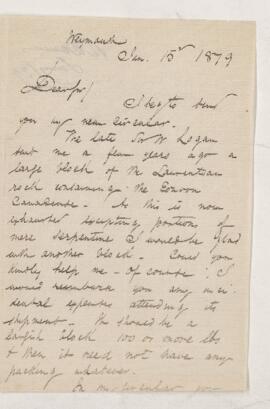 Weymouth
Jan. 15th 1879
Dear Sir/
I beg to send
you my new circular.
The late Sir W Logan
sent me a few years ago a
large block of the Laurentian
rock containing the Eozoon
Canadense. As this is now
exhausted excepting portions of
mere serpentine I would be glad
with another block. Could you
kindly help me - of course I
would reimburse you any inci-
dental expenses attending its
shipment. It should be a
largish block 100 or more lbs
& then it need not have any
packing whatever.
In my circular you